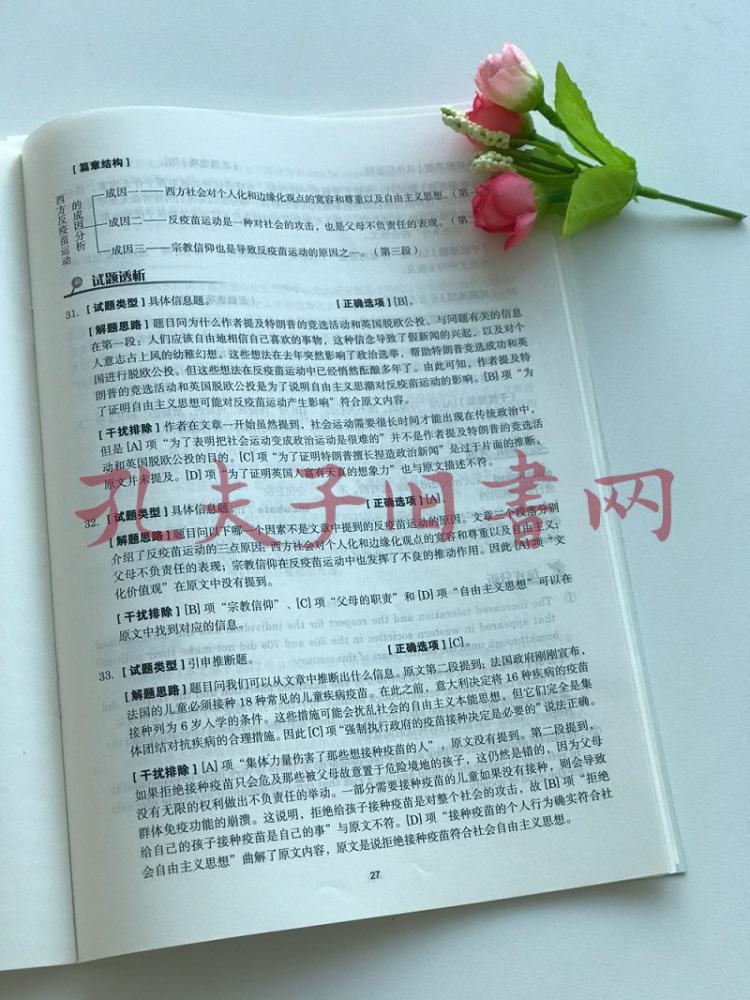 [篇章结构]
西方反疫苗运动
的成因分析
成因一——西方社会对个人化和边缘化观点的宽容和尊重以及自由主义思想。(第一
成因二——反疫苗运动是一种对社会的攻击,也是父母不负责任的表现。(第二
成因三——宗教信仰也是导致反疫苗运动的原因之一。(第三段)
试题透析
31. [试题类型] 具体信息题。 [正确选项] [B]。
[解题思路] 题目问为什么作者提及特朗普的竞选活动和英国脱欧公投。与问题有关的信息
在第一段:人们应该自由地相信自己喜欢的事物,这种信念导致了假新闻的兴起,以及对个
人意志占上风的幼稚幻想。这些想法在去年突然影响了政治选举,帮助特朗普竞选成功和英
国进行脱欧公投。但这些想法在反疫苗运动中已经悄然酝酿多年了。由此可知,作者提及特
朗普的竞选活动和英国脱欧公投是为了说明自由主义思潮对反疫苗运动的影响。[B]项“为
了证明自由主义思想可能对反疫苗运动产生影响”符合原文内容。
[干扰排除] 作者在文章一开始虽然提到,社会运动需要很长时间才能出现在传统政治中,
但是 [A] 项“为了表明把社会运动变成政治运动是很难的”并不是作者提及特朗普的竞选活
动和英国脱欧公投的目的。[C]项“为了证明特朗普擅长捏造政治新闻”是过于片面的推断,
原文并未提及。[D]项“为了证明英国人富有天真的想象力”也与原文描述不符。
孔夫子旧书网
32. [试题类型] 具体信息题。 [正确选项] [A]。
[解题思路] 题目问以下哪一个因素不是文章中提到的反疫苗运动的原因。文章三个段落分别
介绍了反疫苗运动的三点原因:西方社会对个人化和边缘化观点的宽容和尊重以及自由主义;
父母不负责任的表现;宗教信仰在反疫苗运动中也发挥了不良的推动作用。因此 [A] 项“文
化价值观”在原文中没有提到。
[干扰排除] [B] 项“宗教信仰”、[C] 项“父母的职责”和 [D] 项“自由主义思想”可以在
原文中找到对应的信息。
33. [试题类型] 引申推断题。 [正确选项] [C]。
[解题思路] 题目问我们可以从文章中推断出什么信息。原文第二段提到:法国政府刚刚宣布,
法国的儿童必须接种 18 种常见的儿童疾病疫苗。在此之前,意大利决定将 16 种疾病的疫苗
接种列为 6 岁入学的条件。这些措施可能会扰乱社会的自由主义本能思想,但它们完全是集
体团结对抗疾病的合理措施。因此 [C] 项“强制执行政府的疫苗接种决定是必要的”说法正确。
[干扰排除] [A] 项“集体力量伤害了那些想接种疫苗的人”,原文没有提到。第二段提到,
如果拒绝接种疫苗只会危及那些被父母故意置于危险境地的孩子,这仍然是错的,因为父母
没有无限的权利做出不负责任的举动。一部分需要接种疫苗的儿童如果没有接种,则会导致
群体免疫功能的崩溃。这说明,拒绝给孩子接种疫苗是对整个社会的攻击,故 [B] 项“拒绝
给自己的孩子接种疫苗是自己的事”与原文不符。[D] 项“接种疫苗的个人行为确实符合社
会自由主义思想”曲解了原文内容,原文是说拒绝接种疫苗符合社会自由主义思想。
27